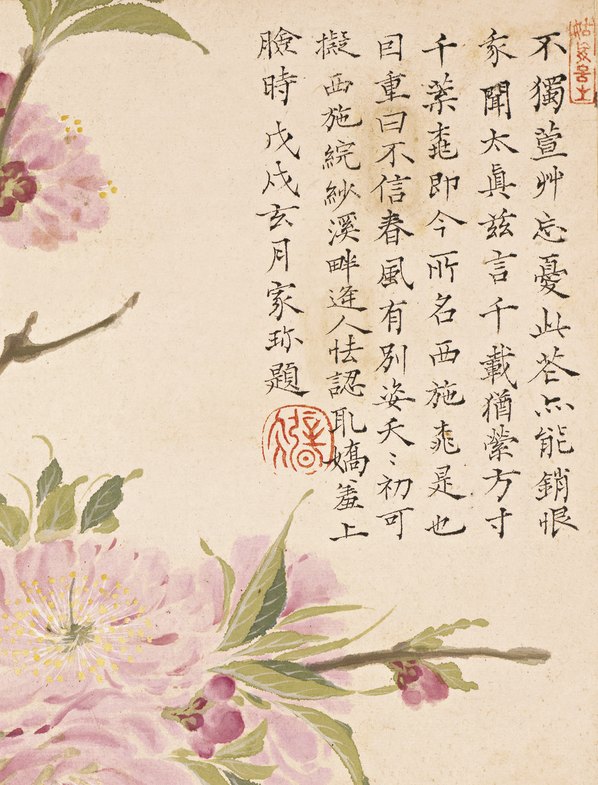 不獨萱艸忘憂此花亦能銷恨
聞太眞兹言千載猶縈方寸
千葉桃即今所名西施桃是也
囙重曰不信春風有別姿夭〻初可
擬西施綄紗溪畔逄人怯認耴嬌羞上
臉時戊戌玄月家珎題